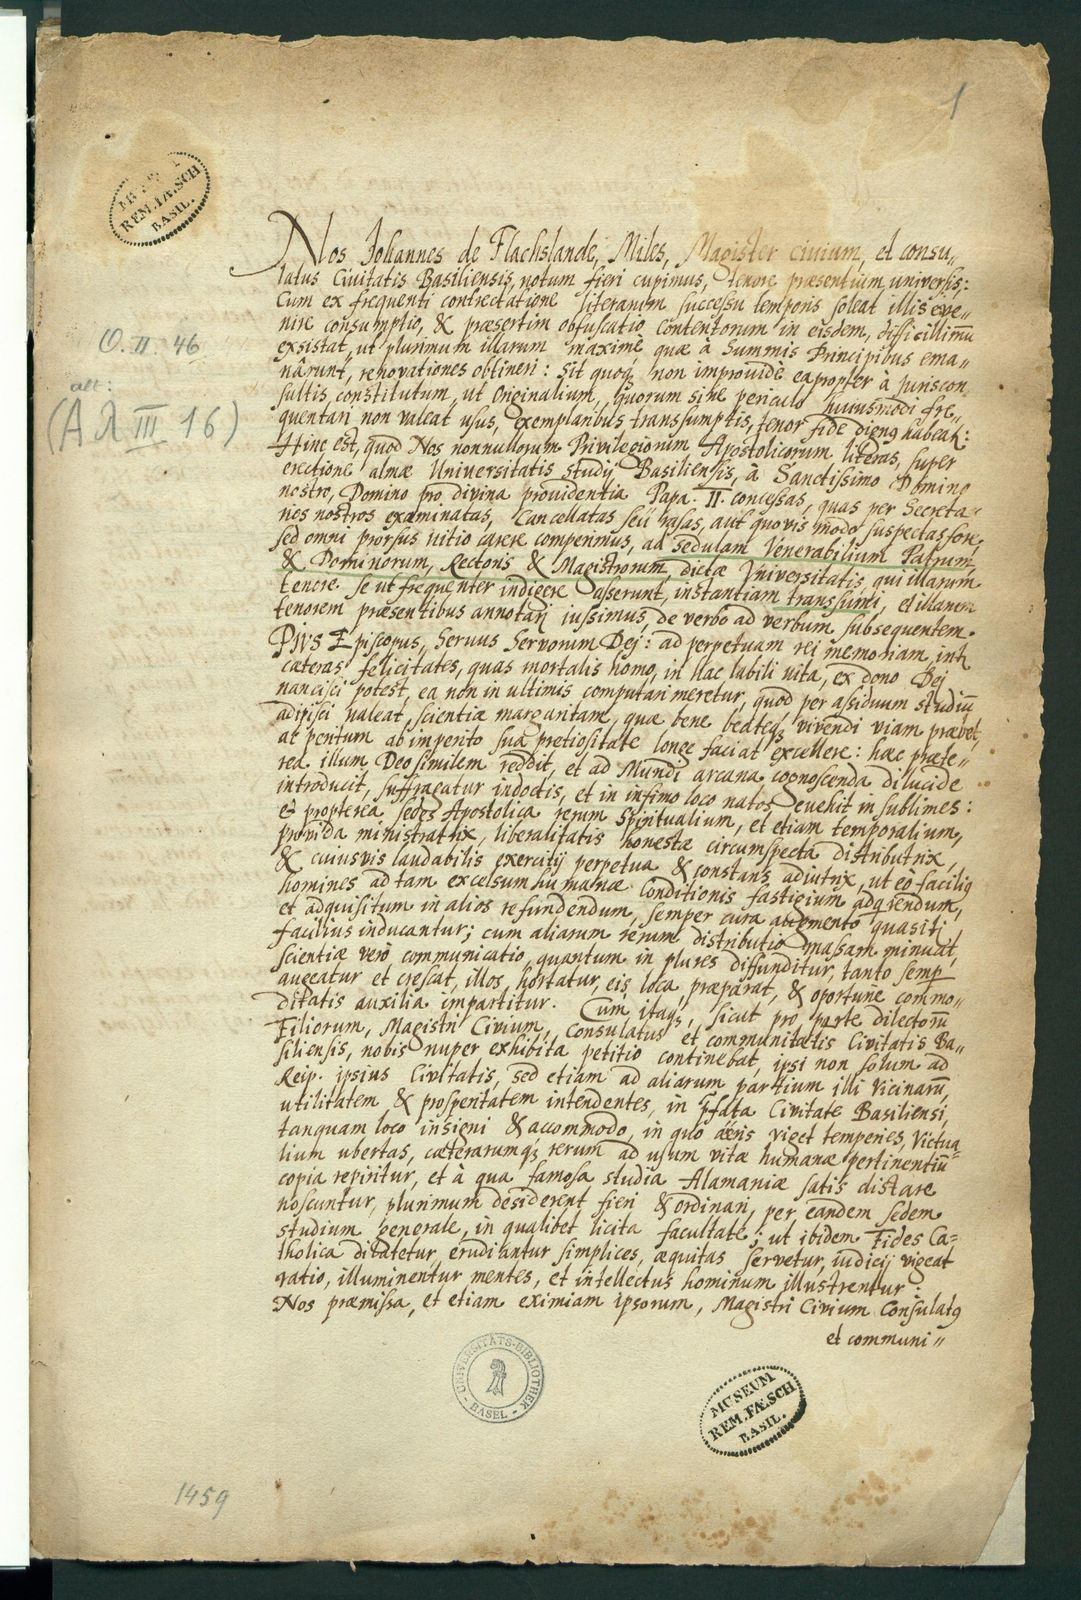 1
MUSEUM
REM. FÆSCH
BASIL.
O. II. 46
alt:
(A λ III 16)
Nos Johannes de Flachslande, Miles, Magister civium, et consu„
latus Civitatis Basiliensis, notum fieri cupimus, tenore præsentium universis:
Cum ex frequenti contrectatione literarum successu temporis soleat illis eve„
nire consumptio, & præsertim obfuscatio contentorum in eisdem, difficillimū
exsistat, ut plurimum illarum maximè, quæ à Summis Principibus ema„
narunt, renovationes obtineri: Sit quoq; non improvidè eapropter à Juriscon„
sultis constitutum, ut Originalium, quorum sine periculo huiusmodi fre„
quentari non valeat usus, exemplaribus transsumptis, tenor fide dignꝰ habeat:
Hinc est, quod Nos nonnullorum Privilegiorum Apostolicorum literas, super
erectione almæ Universitatis studij Basiliensis, à Sanctissimo Domino
nostro, Domino pro divina providentia Papa. II. concessas, quas per Secreta„
rios nostros examinatas, Cancellatas seu rasas, aut quovis modo suspectas fore,
sed omni prorsus vitio carere comperimus, ad sedulam Venerabilium Patrum
& Dominorum, Rectoris & Magistrorum dictæ Universitatis, qui illarum
tenore se ut frequenter indigere asserunt, instantiam transsumi, et illarum
tenorem præsentibus annotari jussimus, de verbo ad verbum subsequentem.
PIVS Episcopus, Servus Servorum Dej: ad perpetuam rei memoriam, intr
cæteras felicitates, quas mortalis homo, in hac labili vita, ex dono Dej
nancisci potest, ea non in ultimis computari meretur, quod per assiduum studiū
adipisci valeat, scientiæ margaritam, quæ bene beateq; vivendi viam præbet,
ac peritum ab imperito sua pretiositate longe faciat excellere: hæc præte„
rea illum Deo similem reddit, et ad Mundi arcana cognoscenda dilucide
introducit, suffragatur indoctis, et in infimo loco natos evehit in sublimes:
& propterea sedes Apostolica rerum Spiritualium, et etiam temporalium,
provida ministratrix, liberalitatis honestæ circumspecta distributrix,
& cuiusvis laudabilis exercitij perpetua & constans adiutrix, ut eò faciliꝰ
homines ad tam excelsum humanæ Conditionis fastigium adqrendum,
et adquisitum in alios refundendum, semper cura augmento quasiti
facilius inducantur; cum aliarum rerum distributio massam minuat,
scientiæ verò communicatio, quantum in plures diffunditur, tanto semp
augeatur et crescat, illos hortatur, eis loca præparat, & oportunè commo„
ditatis auxilia impartitur. Cùm itaq;, sicut pro parte dilectorū
Filiorum, Magistri Civium, Consulatus et communitatis Civitatis Ba„
siliensis, nobis nuper exhibita petitio continebat, ipsi non solum ad
Reip. ipsius Civitatis, sed etiam ad aliarum partium illi Vicinarū,
utilitatem & prosperitatem intendentes, in Pfata Civitate Basiliensi,
tanquam loco insigni & accommodo, in quo aëris viget temperies, Victua„
lium ubertas, cæterarumq; rerum ad usum vitæ humanæ pertinentiū
copia reperitur, et à qua famosa studia Alamaniæ satis distare
noscuntur, plurimum desiderent fieri & ordinari, per eandem sedem
studium generale, in qualibet licita facultate; ut ibidem Fides Ca=
tholica dilatetur, erudiantur simplices, æquitas servetur, iudicij vigeat
ratio, illuminentur mentes, et intellectus hominum illustrentur:
Nos præmissa, et etiam eximiam ipsorum, Magistri Civium Consulatꝰ
et communi„
UNIVERSITÄTS-BIBLIOTHEK
- BASEL -
MUSEUM
REM. FÆSCH
BASIL.
1459